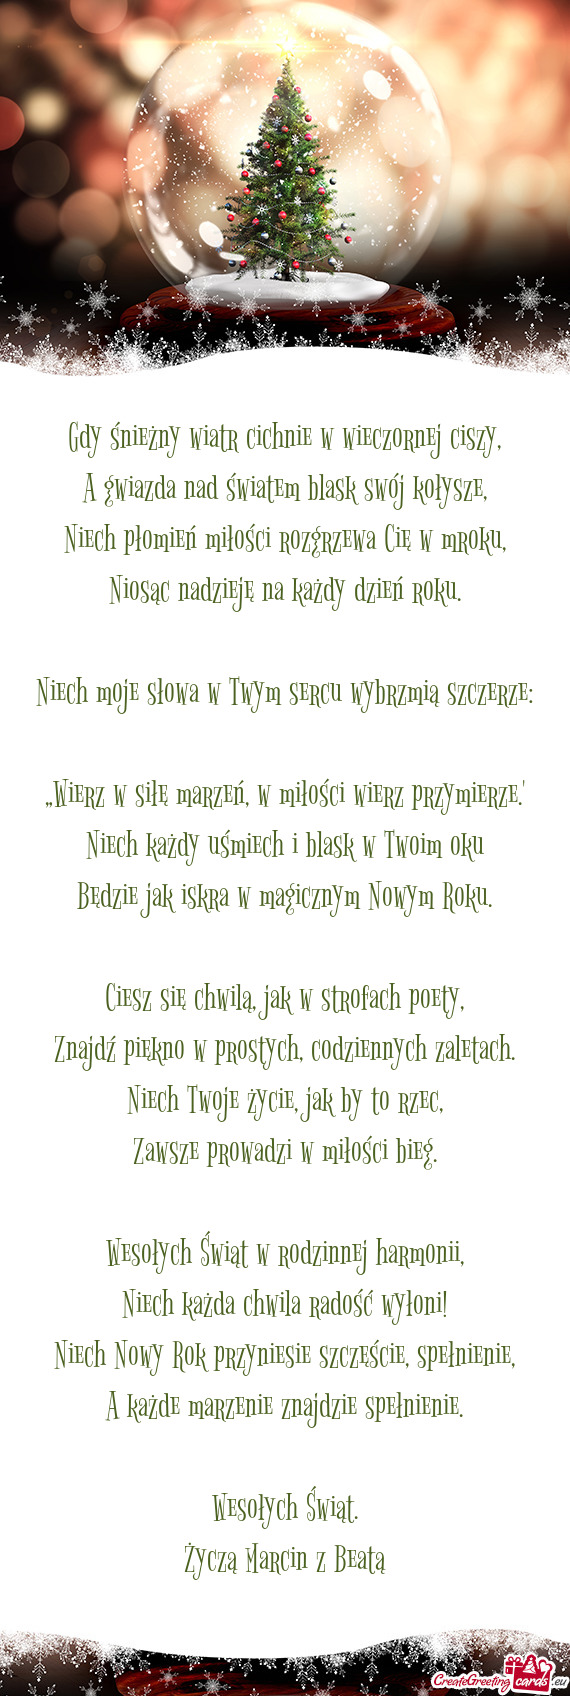 Gdy śnieżny wiatr cichnie w wieczornej ciszy,
A gwiazda nad światem blask swój kołysze,
Niech płomień miłości rozgrzewa Cię w mroku,
Niosąc nadzieję na każdy dzień roku.
Niech moje słowa w Twym sercu wybrzmią szczerze:
„Wierz w siłę marzeń, w miłości wierz przymierze.'
Niech każdy uśmiech i blask w Twoim oku
Będzie jak iskra w magicznym Nowym Roku.
Ciesz się chwilą, jak w strofach poety,
Znajdź piękno w prostych, codziennych zaletach.
Niech Twoje życie, jak by to rzec,
Zawsze prowadzi w miłości bieg.
Wesołych Świąt w rodzinnej harmonii,
Niech każda chwila radość wyłoni!
Niech Nowy Rok przyniesie szczęście, spełnienie,
A każde marzenie znajdzie spełnienie.
Wesołych Świąt.
Życzą Marcin z Beatą
CreateGreeting cards .eu